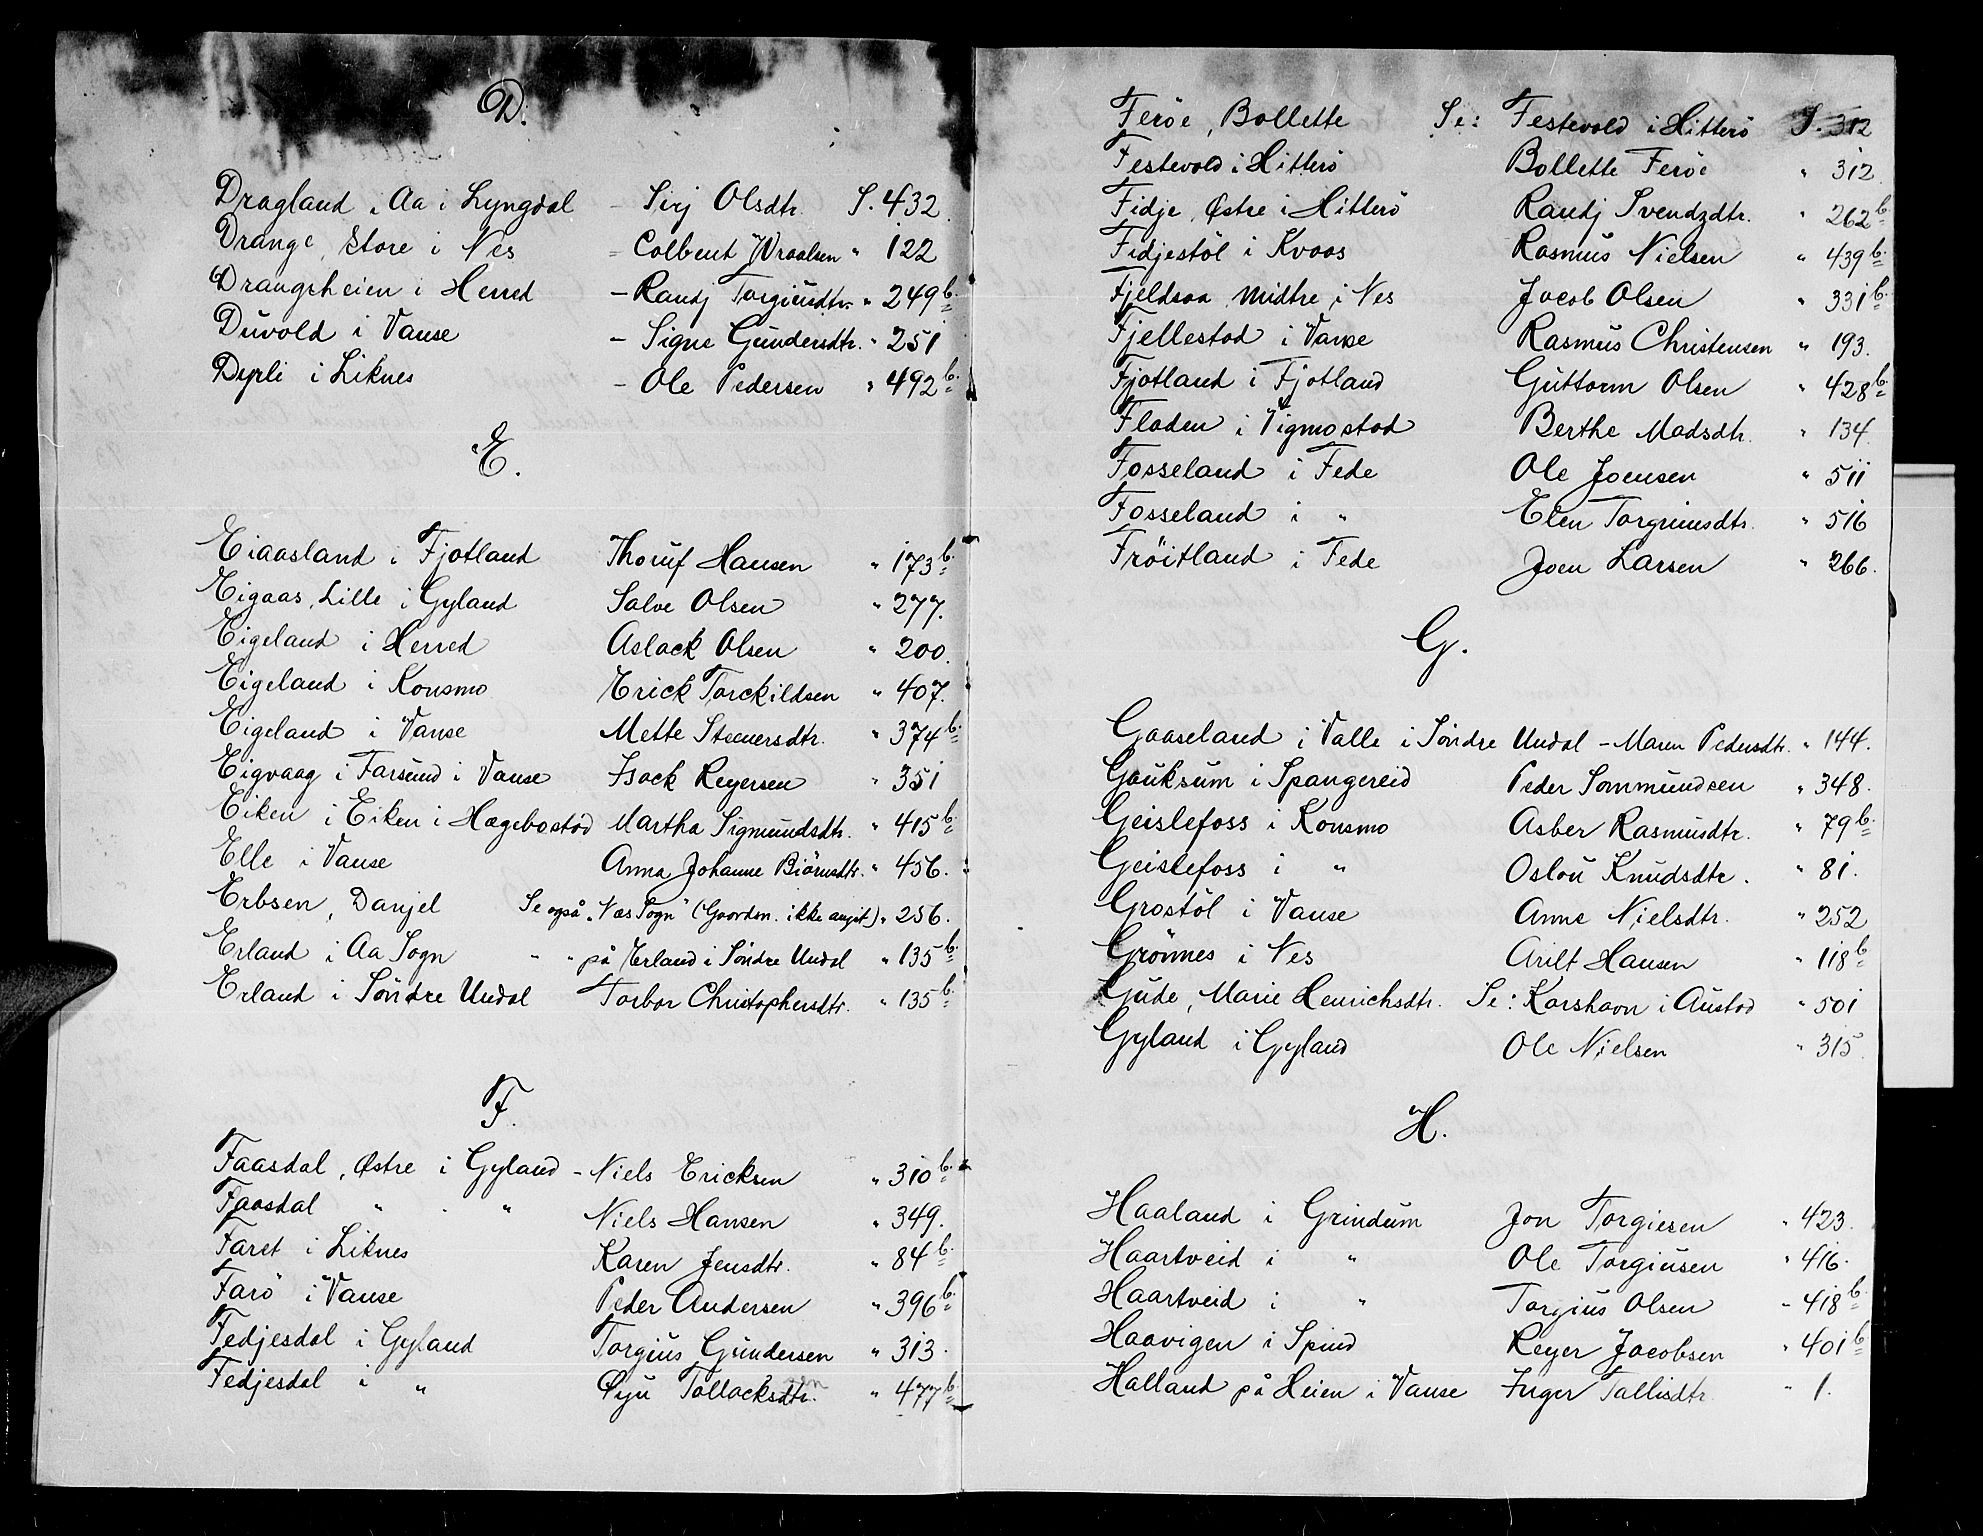 D.
Dragland, Aa i Lyngdal - Sirj Olsdtr. S. 432.
Drange, Store i Nes = Colbent Wraalsen " 122
Drangsheien i Herred - Randj Torgiusdtr. " 249 b.
Duvold i Vanse - Signe Gundersdtr. " 251
Dyrli i Liknes - Ole Pedersen " 492 b.
E.
Eiaasland i Fjotland Thoruf Hansen " 173 b.
Eigaas, Lille i Gyland Salve Olsen " 277.
Eigeland i Herred Aslack Olsen " 200.
Eigeland i Konsmo Erick Torckildsen " 407.
Eigeland i Vanse Mette Steenersdtr. " 374 b.
Eigvaag i Farsund i Vanse Isack Reyersen " 351
Eiken i Eiken i Hægebostad Martha Sigmundsdtr. " 415 b.
Elle i Vanse Anna Johanne Biörnsdtr. " 456.
Erbsen, Danjel Se også "Næs Sogn" (Gaarden ikke angit) " 256.
Erland i Aa Sogn " " på Erland i Söndre Undal " 135 b.
Erland i Söndre Undal Torbor Christophersdtr. " 135 b.
F.
Faasdal, Østre i Gyland - Niels Ericksen " 310 b.
Faasdal " " Niels Hansen " 349.
Faret i Liknes Karen Jensdtr. " 84 b.
Farö i Vanse Peder Andersen " 396 b.
Fedjesdal i Gyland Torgius Gundersen " 313.
Fedjesdal i " Øyu Tollacksdtr. " 477 b.
Feröe, Bollette Se: Festevold i Hitterö S. 312
Festevold i Hitterö Bollette Feröe " 312.
Fidje, Østre i Hitterö Randj Svendzdtr. " 262 b.
Fidjestöl i Kvaas Rasmus Nielsen " 439 b.
Fjeldsaa, Midtre i Nes Jacob Olsen " 331 b.
Fjellestad i Vanse Rasmus Christensen " 193.
Fjotland i Fjotland Guttorm Olsen " 428 b.
Fladen i Vigmostad Berthe Madsdtr. " 134.
Fosseland i Fede Ole Joensen " 511
Fosseland i " Elen Torgrimsdtr. " 516
Fröitland i Fede Joen Larsen " 266.
G.
Gaaseland i Valle i Söndre Undal - Maren Pedersdtr. " 144.
Gauksum i Spangereid Peder Sommundsen " 348.
Geislefoss i Konsmo Asber Rasmusdtr. " 79 b.
Geislefoss i " Oslou Knudsdtr. " 81.
Grostöl i Vanse Anne Nielsdtr. " 252
Grönnes i Nes Arilt Hansen " 118 b
Gude, Marie Henrichsdtr. Se: Korshavn i Austad " 501
Gyland i Gyland Ole Nielsen " 315.
H.
Haaland i Grindum Jon Torgiesen " 423.
Haartveid i " Ole Torgiusen " 416.
Haartveid i " Torgius Olsen " 418 b.
Haavigen i Spind Reyer Jacobsen " 401 b
Halland på Heien i Vanse Inger Tallisdtr. " 1.